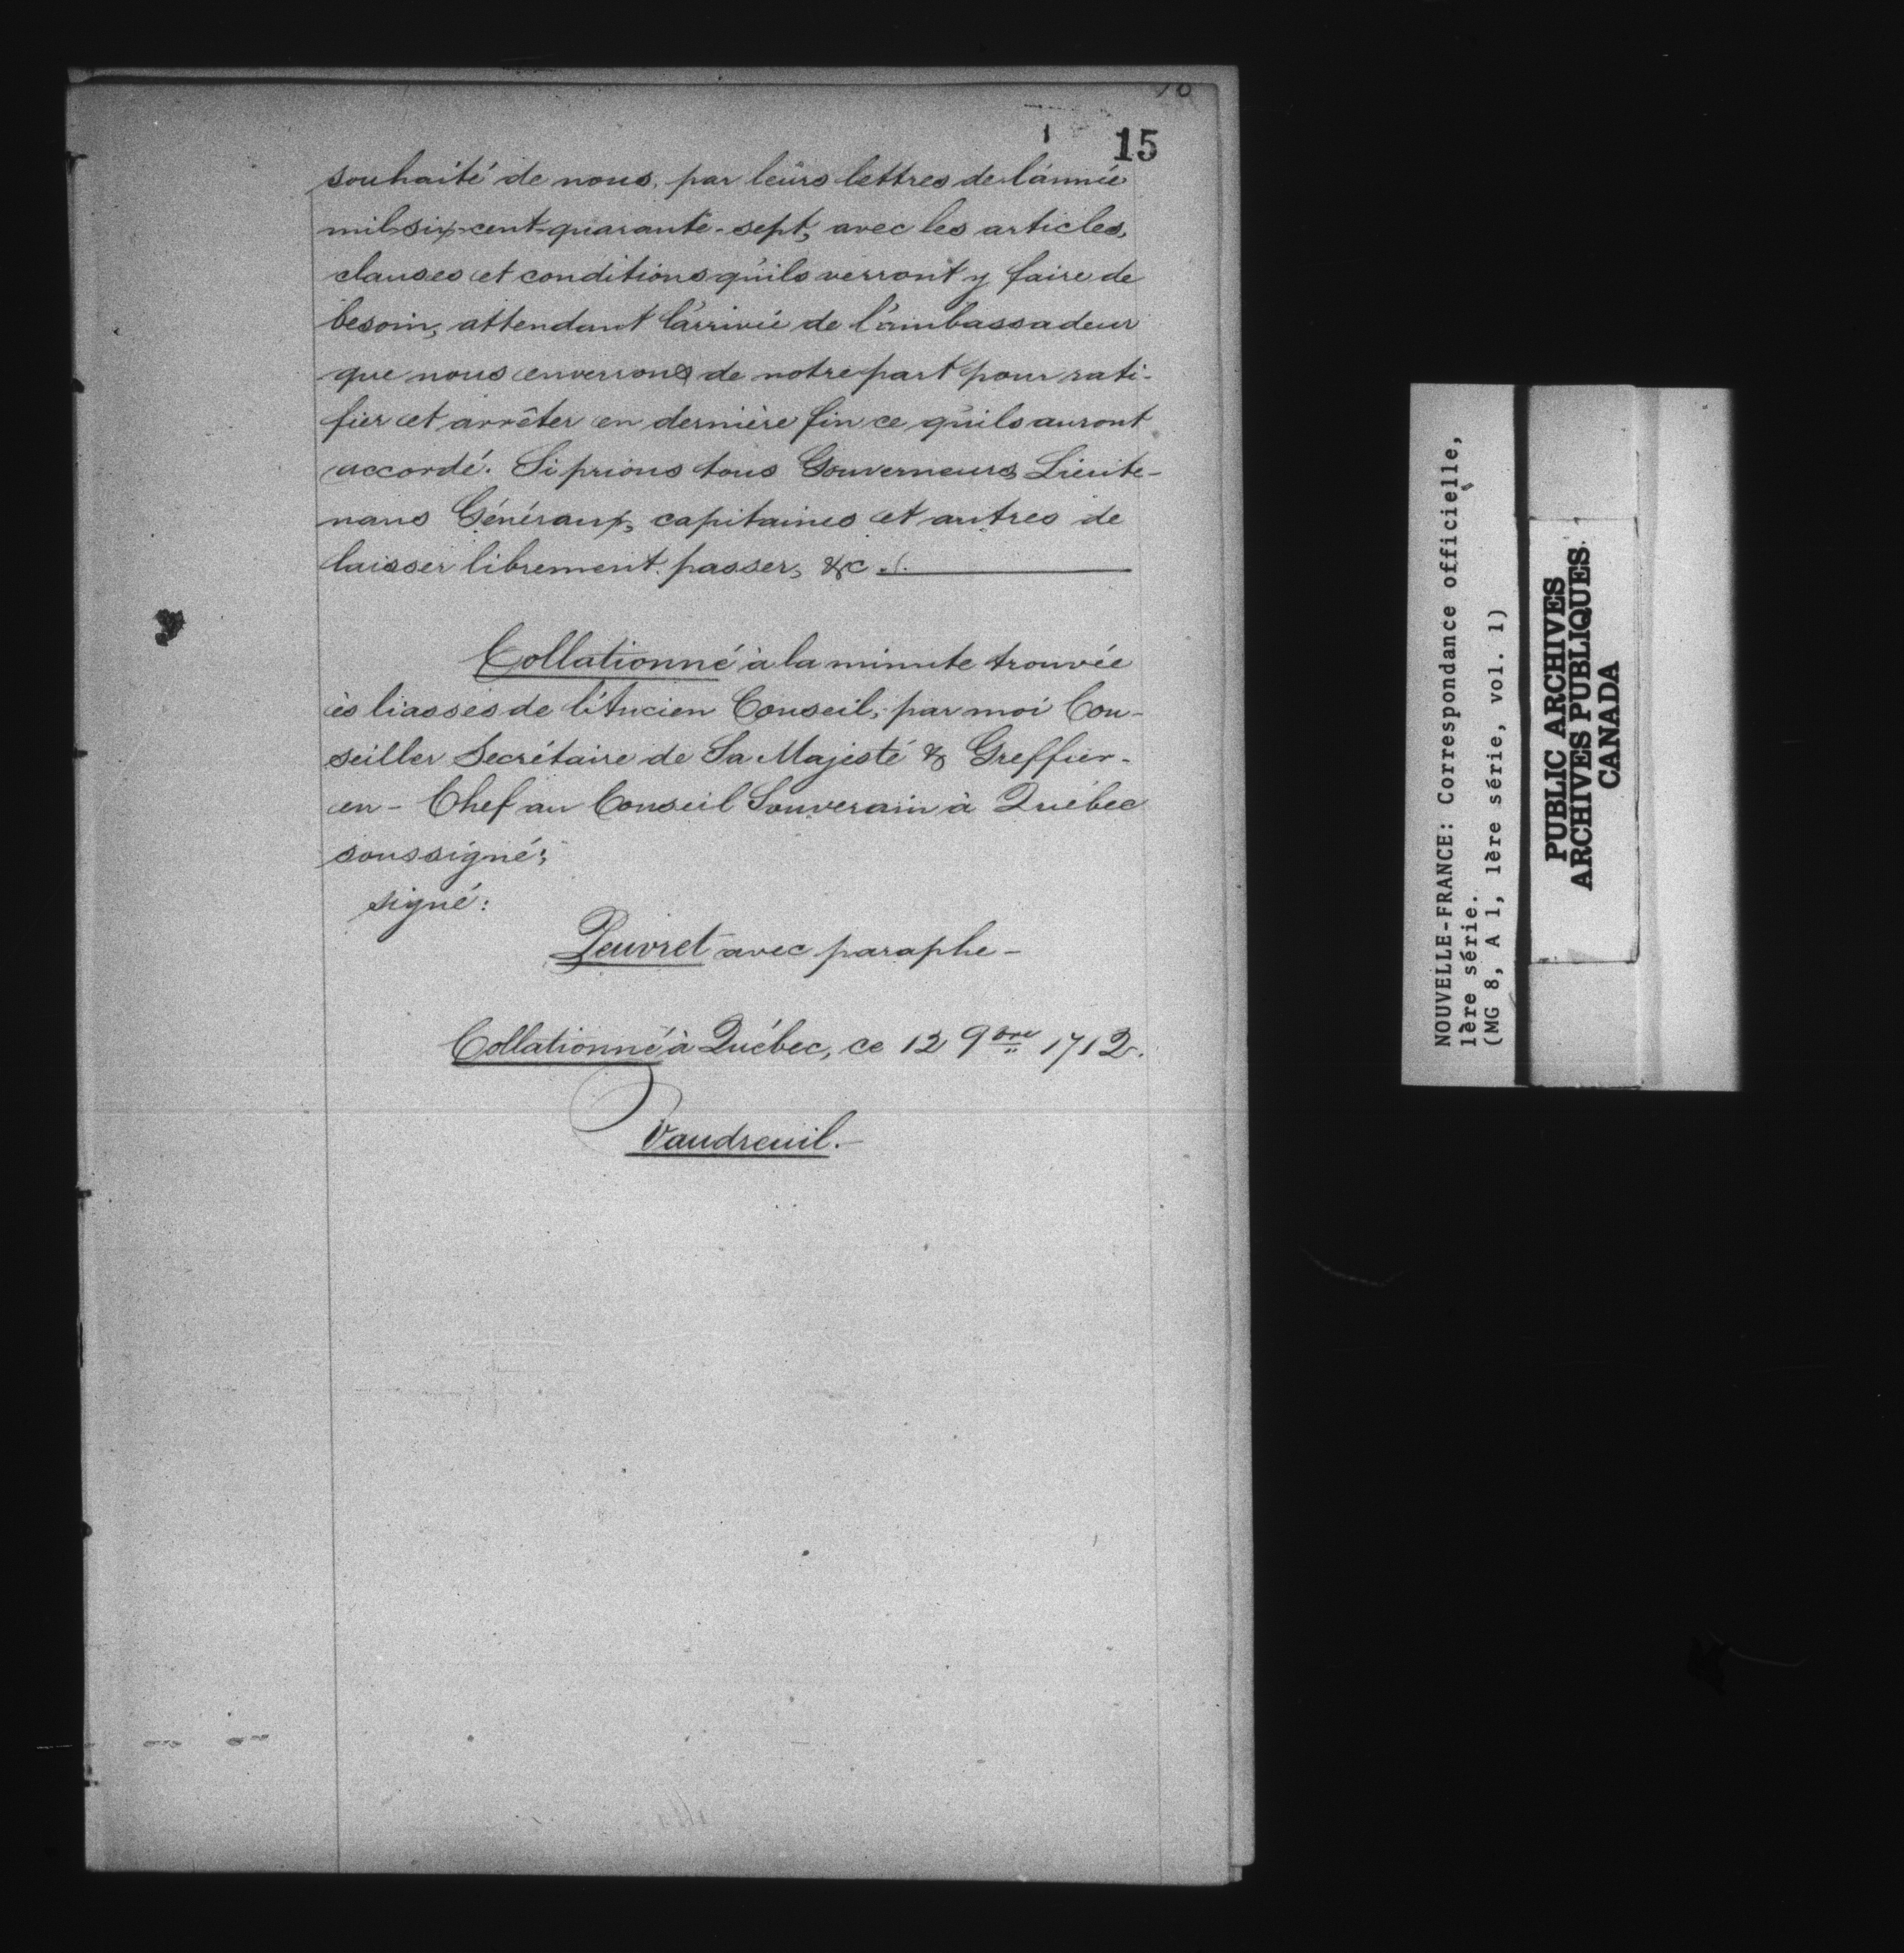 15
souhaité de nous, par leurs lettres de l'année
mil-six-cent-quarante-sept, avec les articles,
clauses et conditions qu'ils verront y faire de
besoin, attendant l'arrivée de l'ambassadeur
que nous enverrons de notre part pour rati-
fier et arrêter en dernière fin ce qu'ils auront
accordé. Si prions tous Gouverneurs, Lieute-
nans Généraux, capitaines et autres de
laisser librement passer, &c.
Collationné à la minute trouvée
ès liasses de l'Ancien Conseil, par moi Con-
seiller Secrétaire de Sa Majesté & Greffier-
en-Chef au Conseil Souverain à Québec
soussigné;
signé:
Peuvret avec paraphe -
Collationné à Québec, ce 12 9bre 1712.
Vaudreuil.-
NOUVELLE-FRANCE: Correspondance officielle,
1ère série.
(MG 8, A 1, 1ère série, vol. 1)
PUBLIC ARCHIVES
ARCHIVES PUBLIQUES
CANADA